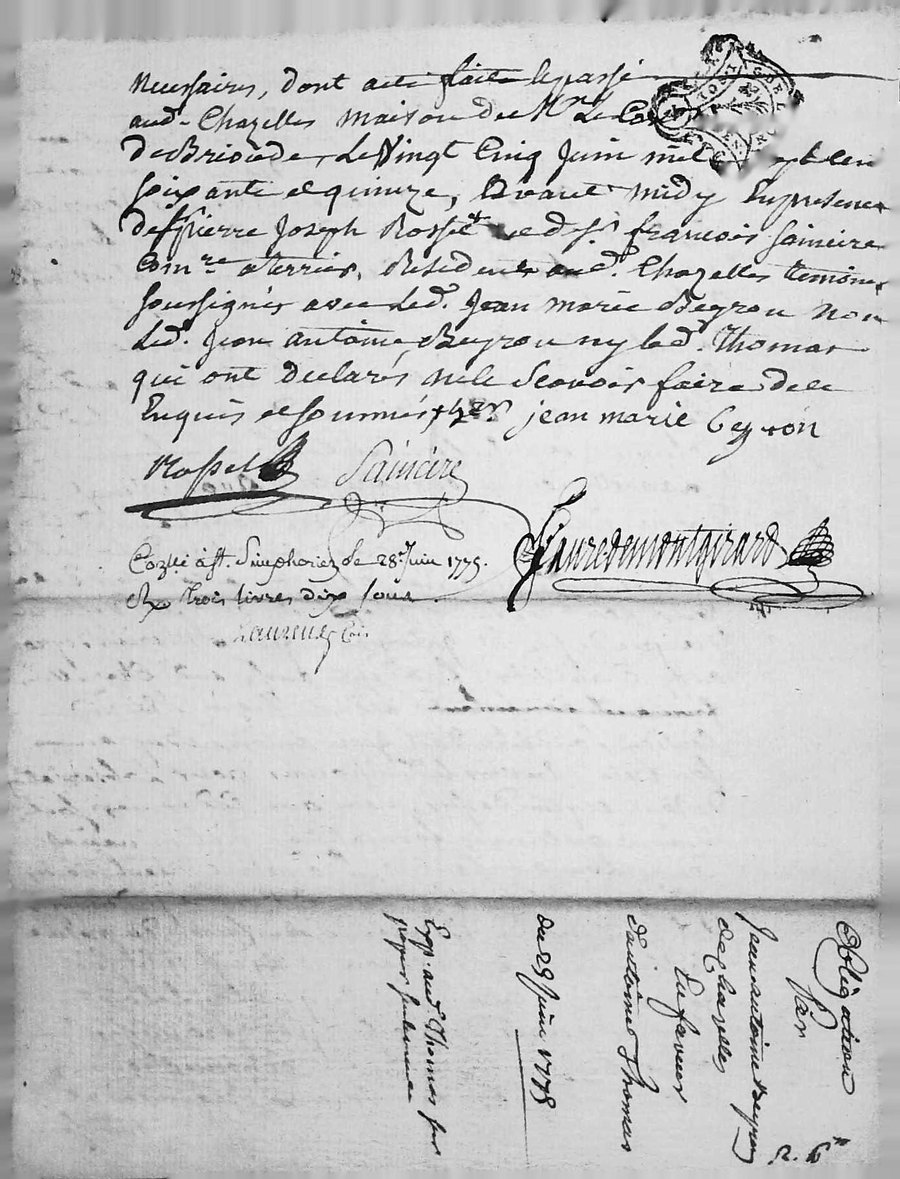 necessaires, dont acte faite le passé
aud. Chazelles maison du Mr. Le Co
de Brioude, Le Vingt Cinq Juin mil sept cen
soixante et quinze, avant midy En presence
de Sr. pierre Joseph Rossel et d. Sr. francois Saincire
Comre. a terrier, Residents aud. Chazelles temoins
soussignés avec led. Jean marie Beyron Non
led. Jean antoine Beyron ny led. Thomas
qui ont declarés ne le Scavoir faire de ce
Enquis et sommés jean marie Beyron
Rossel Saincire
Fauredemontgirard
à st. Simphorien le 28. Juin 1775.
trois livres dix sous.
Laurens
Obligation
Par
Jean antoine Beyron
de Chazelles
En faveur
d'antoine Thomas
du 29 Juin 1775
Exp. aud. Thomas sur
papier seulement